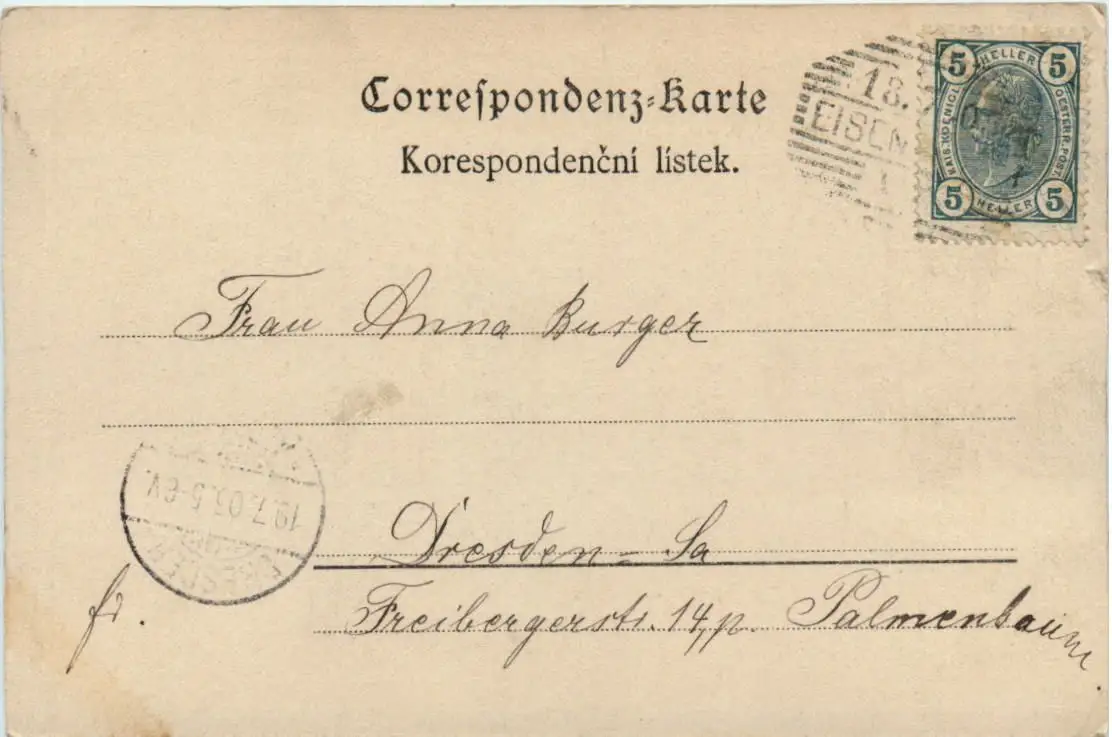 Correſpondenz=Karte
Korespondenční lístek.
18.
EISEN
5 HELLER 5
KAIS. KOENIGL. OESTERR. POST.
5 HELLER 5
Frau Anna Burger
19.7.03.5-6V.
DRESDEN
Dresden-Sa
fr.
Freibergerstr. 14,p. Palmenbaum.